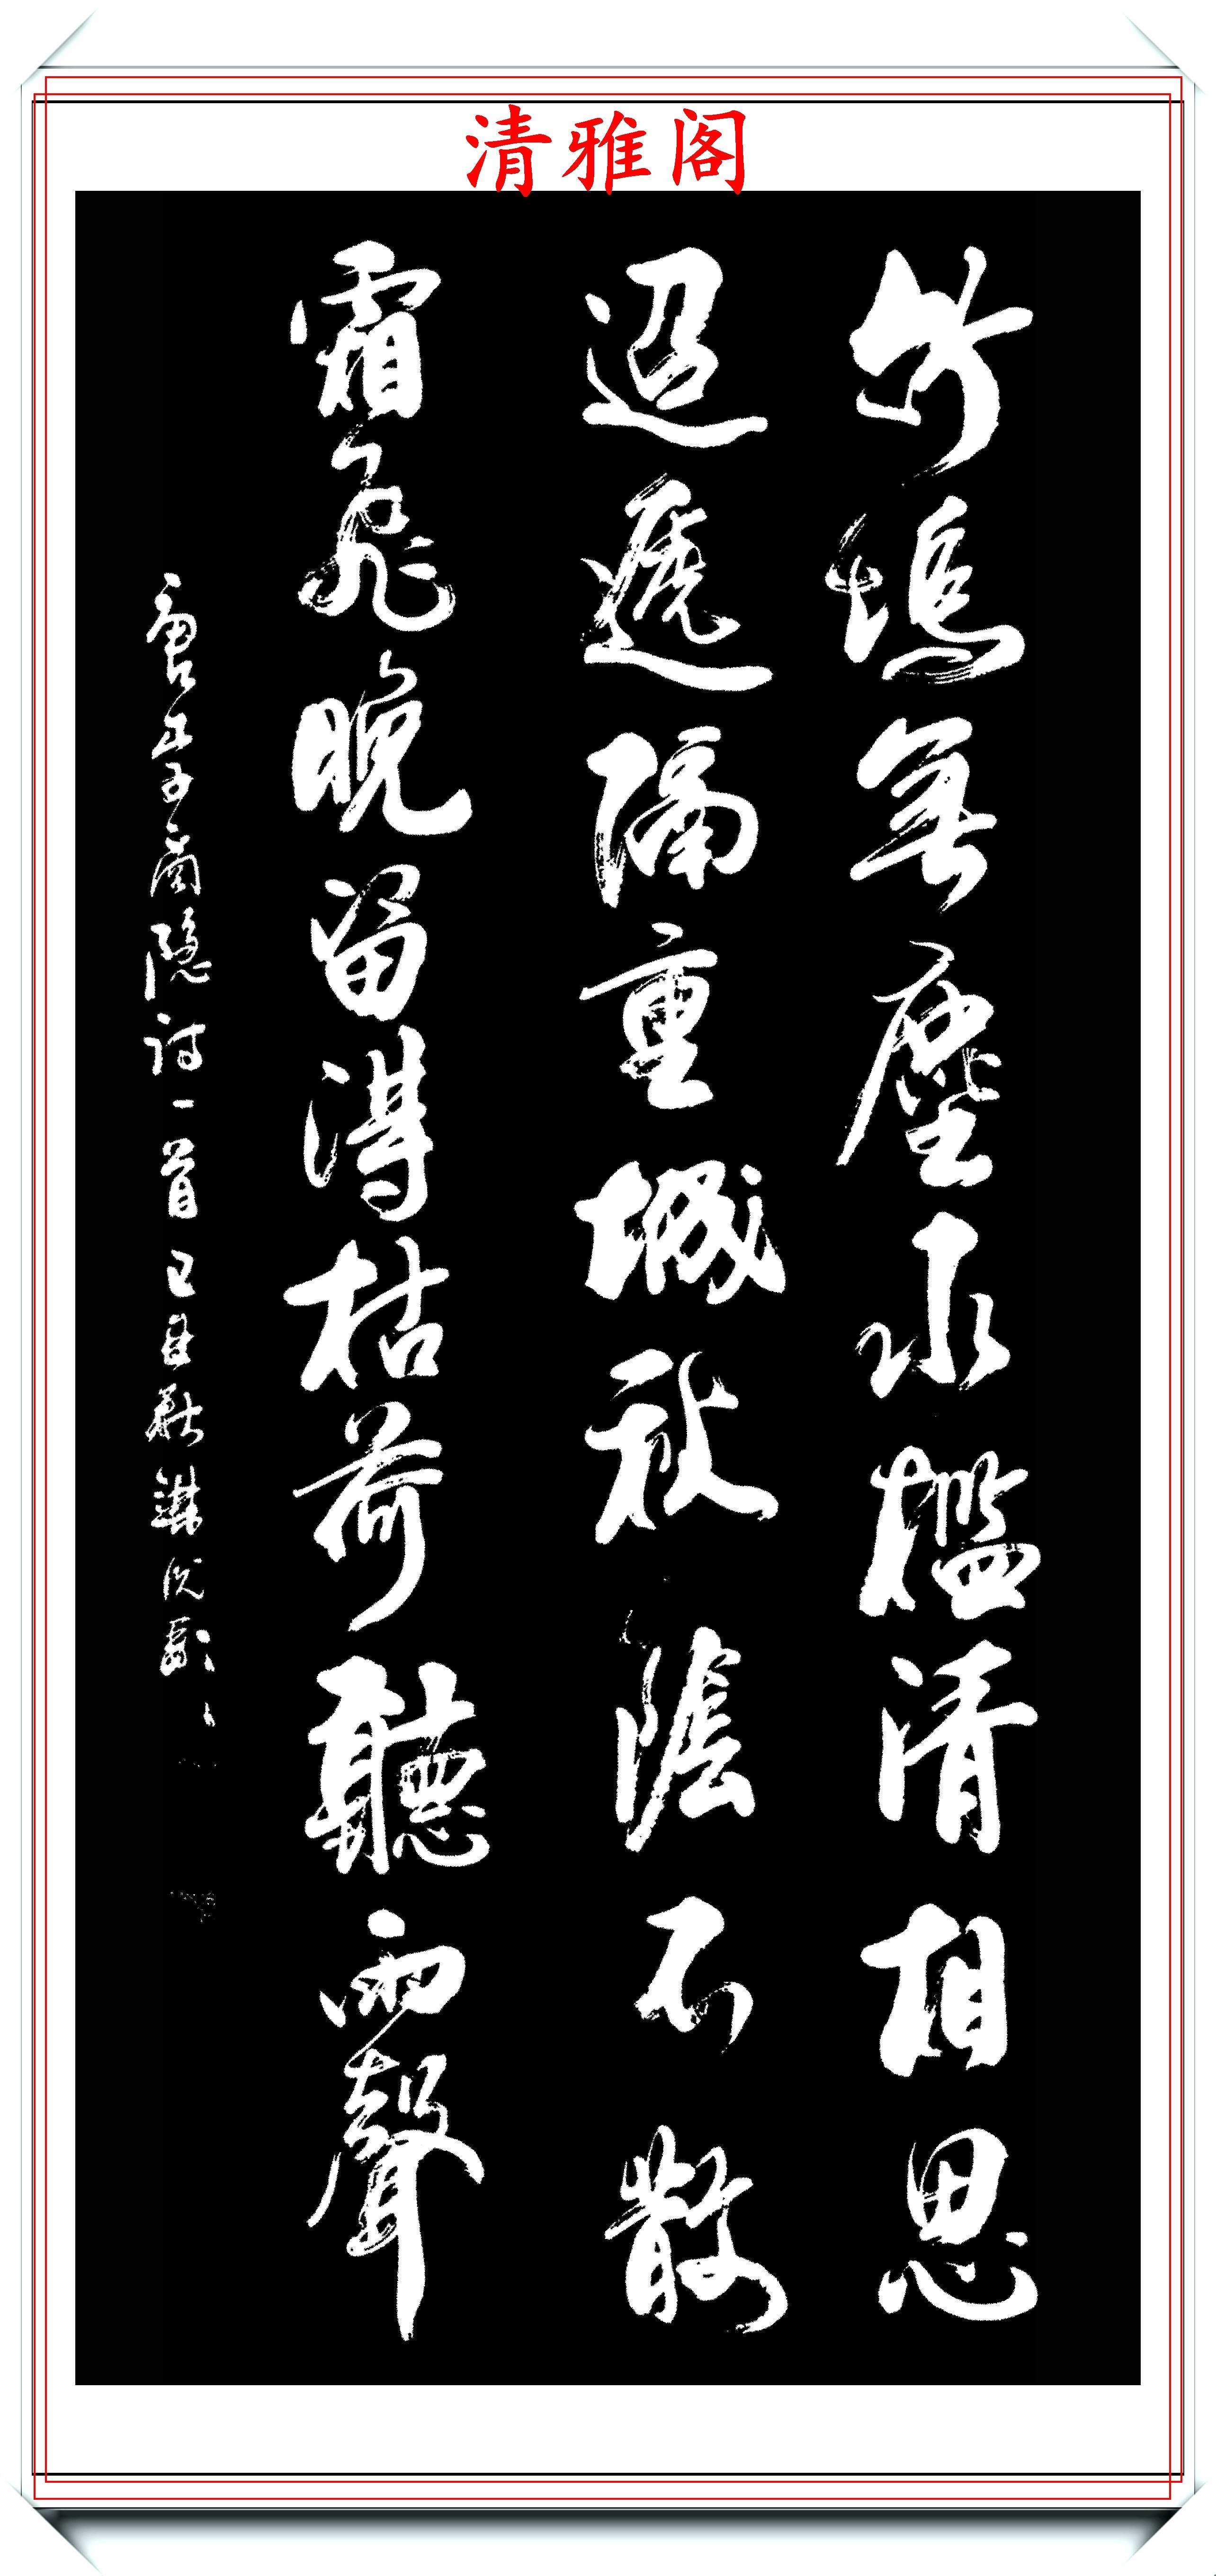 清雅阁
竹塢無塵水檻清相思
迢遞隔重城秋陰不散
霜飛晚留得枯荷聽雨聲
唐李商隱詩一首己丑秋